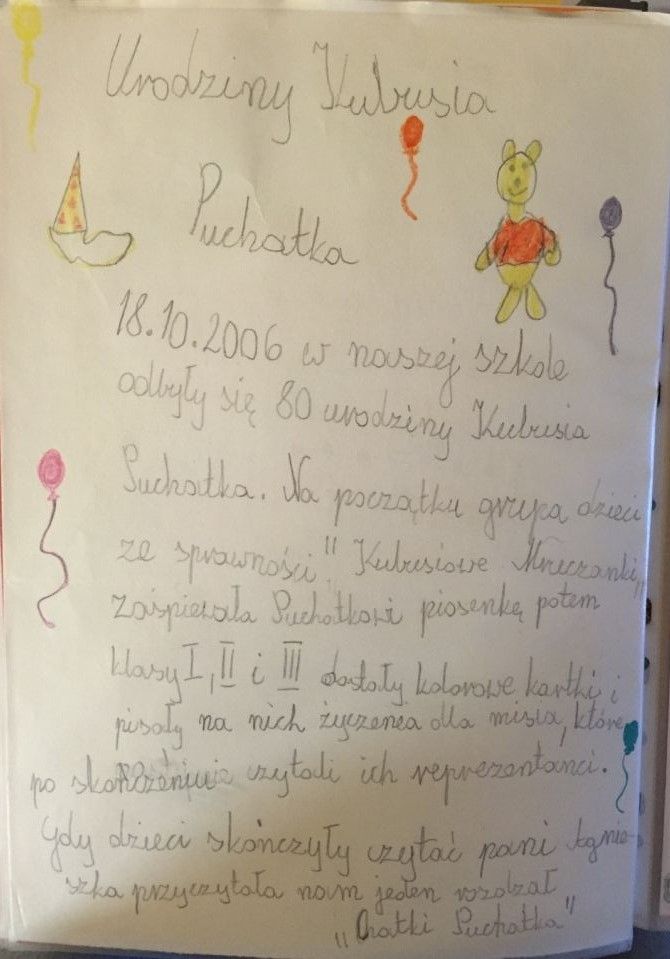 Urodziny Kubusia
Puchatka
18.10.2006 w naszej szkole
odbyły się 80 urodziny Kubusia
Puchatka. Na początku grupa dzieci
ze sprawności "Kubusiowe Mruczanki"
zaśpiewała Puchatkowi piosenkę potem
klasy I, II i III dostały kolorowe kartki i
pisały na nich życzenea dla misia, które
po skończeniu czytali ich reprezentanci.
Gdy dzieci skończyły czytać pani Agnie-
szka przyczytała nam jeden rozdzał
„Chatki Puchatka"